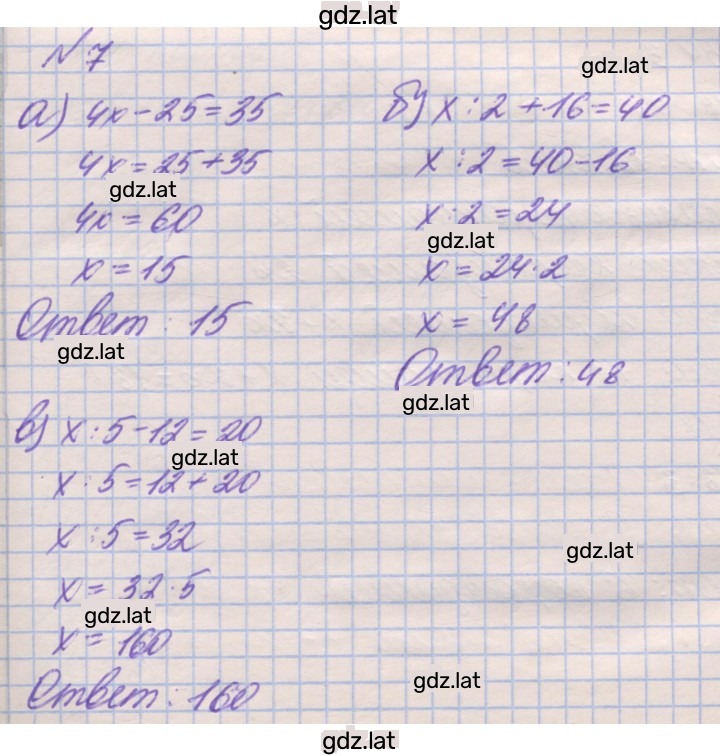 gdz.lat
N 7
gdz.lat
а) 4x - 25 = 35
4x = 25 + 35
gdz.lat
4x = 60
x = 15
Ответ : 15
gdz.lat
б) x : 2 + 16 = 40
x : 2 = 40 - 16
x : 2 = 24
gdz.lat
x = 24 · 2
x = 48
Ответ : 48
gdz.lat
в) x : 5 - 12 = 20
gdz.lat
x : 5 = 12 + 20
x : 5 = 32
gdz.lat
x = 32 · 5
gdz.lat
x = 160
Ответ : 160
gdz.lat
gdz.lat